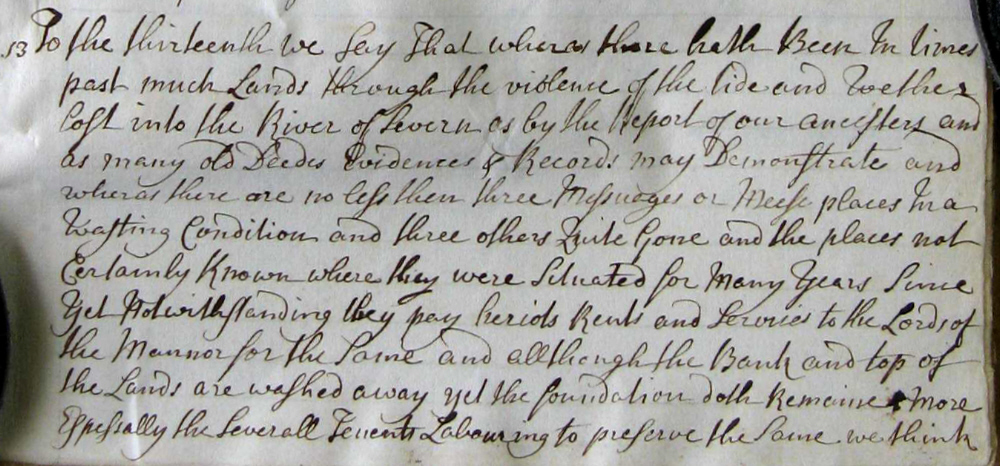 13 To the thirteenth we Say That wheras there hath Been In times
past much Lands through the violence of the tide and Wether
Lost into the River of Severn as by the Report of our ancesters and
as many old Deedes Evidences & Records may Demonstrate and
wheras there are no less then three Messuages or Meese places In a
Wasting Condition and three others Quite Gone and the places not
Certainly Known where they were Situated for Many Years Since
Yet Notwithstanding they pay heriots Rents and Services to the Lords of
the Mannor for the Same and allthough the Bank and top of
the Lands are washed away yet the foundation doth Remaine More
Espesially the Severall Tenents Labouring to preserve the Same we think